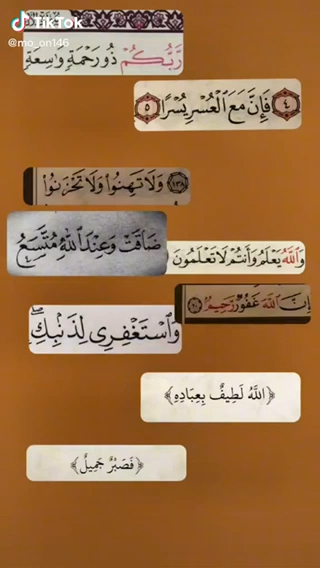 TikTok
@mo_on146
رَّبُّكُمْ ذُو رَحْمَةٍ وَاسِعَةٍ
٤ فَإِنَّ مَعَ ٱلْعُسْرِ يُسْرًا ٥
١٣٨ وَلَا تَهِنُوا۟ وَلَا تَحْزَنُوا۟
ضَاقَتْ وَعِنْدَ اللّٰهِ مُتَّسَعُ
وَٱللَّهُ يَعْلَمُ وَأَنتُمْ لَا تَعْلَمُونَ
إِنَّ ٱللَّهَ غَفُورٌ رَّحِيمٌ
وَٱسْتَغْفِرِى لِذَنۢبِكِ ۖ
﴿اللَّهُ لَطِيفٌ بِعِبَادِهِ﴾
﴿فَصَبْرٌ جَمِيلٌ﴾